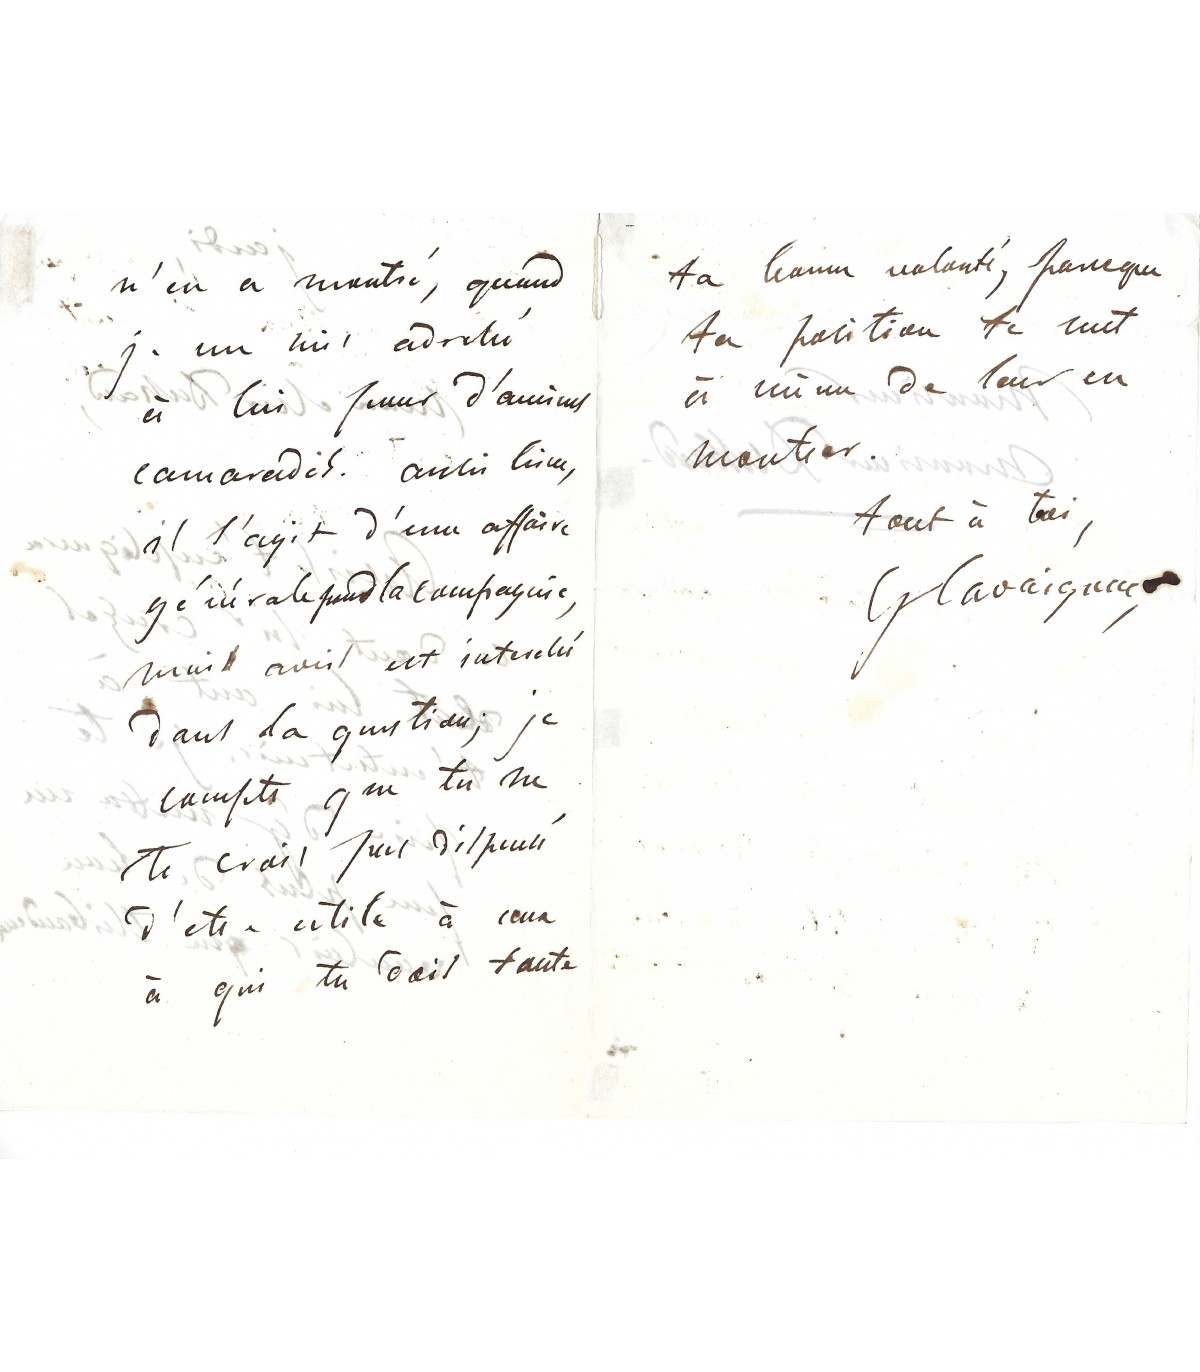 n'en a montré, quand
je me suis adressé
à lui pour d'anciens
camarades. aussi bien,
il s'agit d'une affaire
générale pour la compagnie,
mais avis est intéressé
dans la question; je
compte que tu ne
te crois pas dispensé
d'etre utile à ceux
à qui tu dois toute
ta bonne volonté, parceque
ta position te met
à même de leur en
montrer.
tout à toi,
G Cavaignac